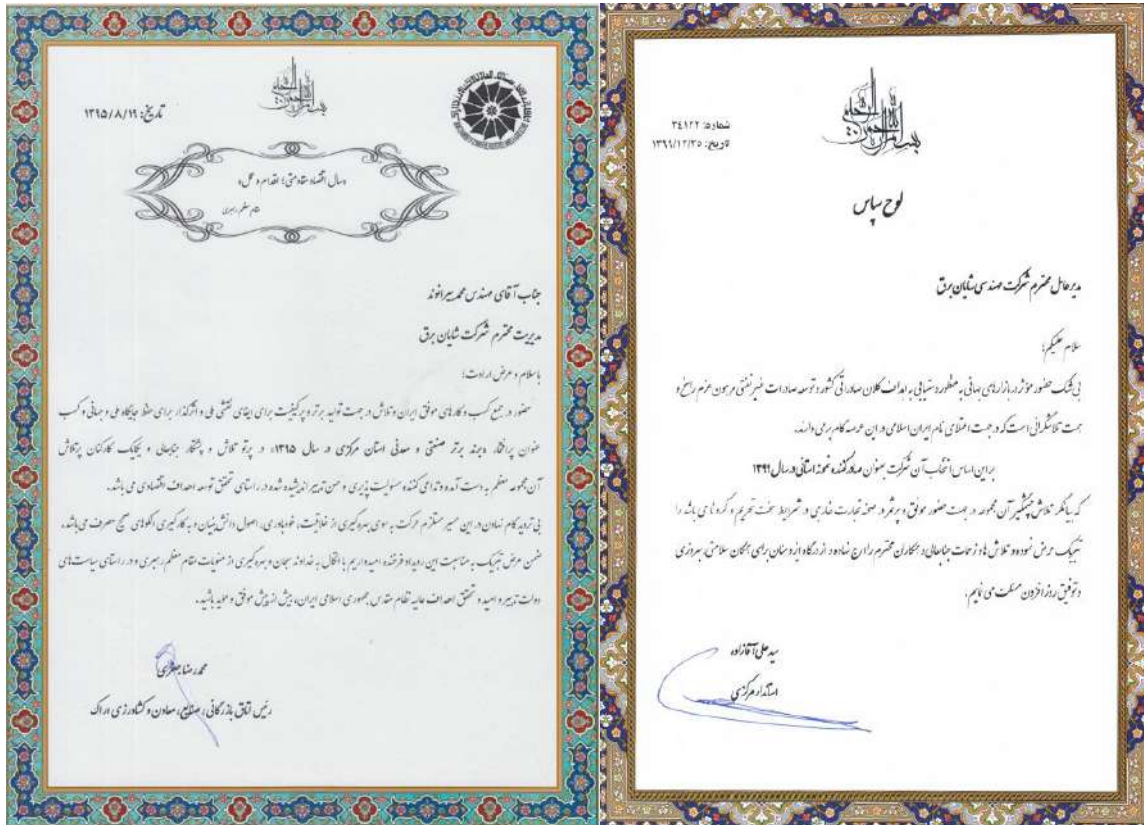 بسم الله الرحمن الرحیم
تاریخ: ۱۳۹۵/۸/۱۹
«سال اقتصاد مقاومتی؛ اقدام و عمل»
مقام معظم رهبری
جناب آقای مهندس محمد بیرانوند
مدیریت محترم شرکت شایان برق
با سلام و عرض ارادت؛
حضور در جمع کسب و کارهای موفق ایران و تلاش در جهت تولید برتر و پر کیفیت برای ایفای نقشی ملی و اثرگذار برای حفظ جایگاه ملی و جهانی و کسب
عنوان پرافتخار «برند برتر صنعتی و معدنی استان مرکزی در سال ۱۳۹۵» در پرتو تلاش و پشتکار جنابعالی و یکایک کارکنان پرتلاش
آن مجموعه معظم به دست آمده و تداعی کننده مسولیت پذیری و حسن تدبیر اندیشیده شده در راستای تحقق توسعه اهداف اقتصادی می باشد.
بی تردید گام نهادن در این مسیر مستلزم حرکت به سوی بهره گیری از خلاقیت، خودباوری، اصول دانش بنیان و به کارگیری الگوهای صحیح مصرف می باشد.
ضمن عرض تبریک به مناسبت این رویداد فرخنده امیدواریم با اتکال به خداوند سبحان و بهره گیری از منویات مقام معظم رهبری و در راستای سیاست های
دولت تدبیر و امید و تحقق اهداف عالیه نظام مقدس جمهوری اسلامی ایران، بیش از پیش موفق و موید باشید.
محمدرضا
رئیس اتاق بازرگانی، صنایع، معادن و کشاورزی اراک
بسم الله الرحمن الرحیم
شماره: ۳۴۱۲۲
تاریخ: ۱۳۹۹/۱۲/۲۵
لوح سپاس
مدیرعامل محترم شرکت مهندسی شایان برق
سلام علیکم؛
بی شک حضور مؤثر در بازارهای جهانی به منظور دستیابی به اهداف کلان صادراتی کشور و توسعه صادرات غیر نفتی مرهون عزم راسخ و
همت تلاشگرانی است که در جهت اعتلای نام ایران اسلامی در این عرصه گام برمی دارند.
بر این اساس انتخاب آن شرکت بعنوان صادرکننده نمونه استانی در سال ۱۳۹۹
که بیانگر تلاش چشمگیر آن مجموعه در جهت حضور موفق و پرثمر در صحنه تجارت خارجی در شرایط سخت تحریم و کرونا می باشد را
تبریک عرض نموده و تلاش ها و زحمات جنابعالی و همکاران محترم را ارج نهاده و از درگاه ایزد منان برای همگان سلامتی، بهروزی
و توفیق روزافزون مسئلت می نمایم.
سید علی آقازاده
استاندار مرکزی